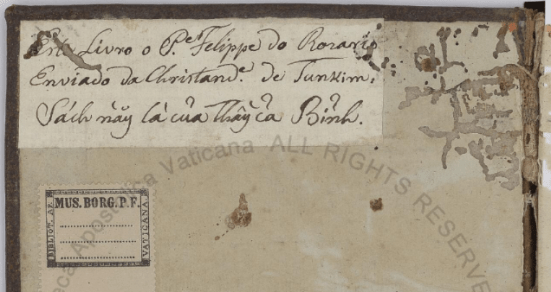 Este Livro o P.e Felippe do Rozario
Enviado da Christand.e de Tunkim.
Sách nầy là của thầy cả Bỉnh.
MUS. BORG. P. F.
BIBLIOT. AP.
VATICANA
Apostolica Vaticana ALL RIGHTS RESERVE